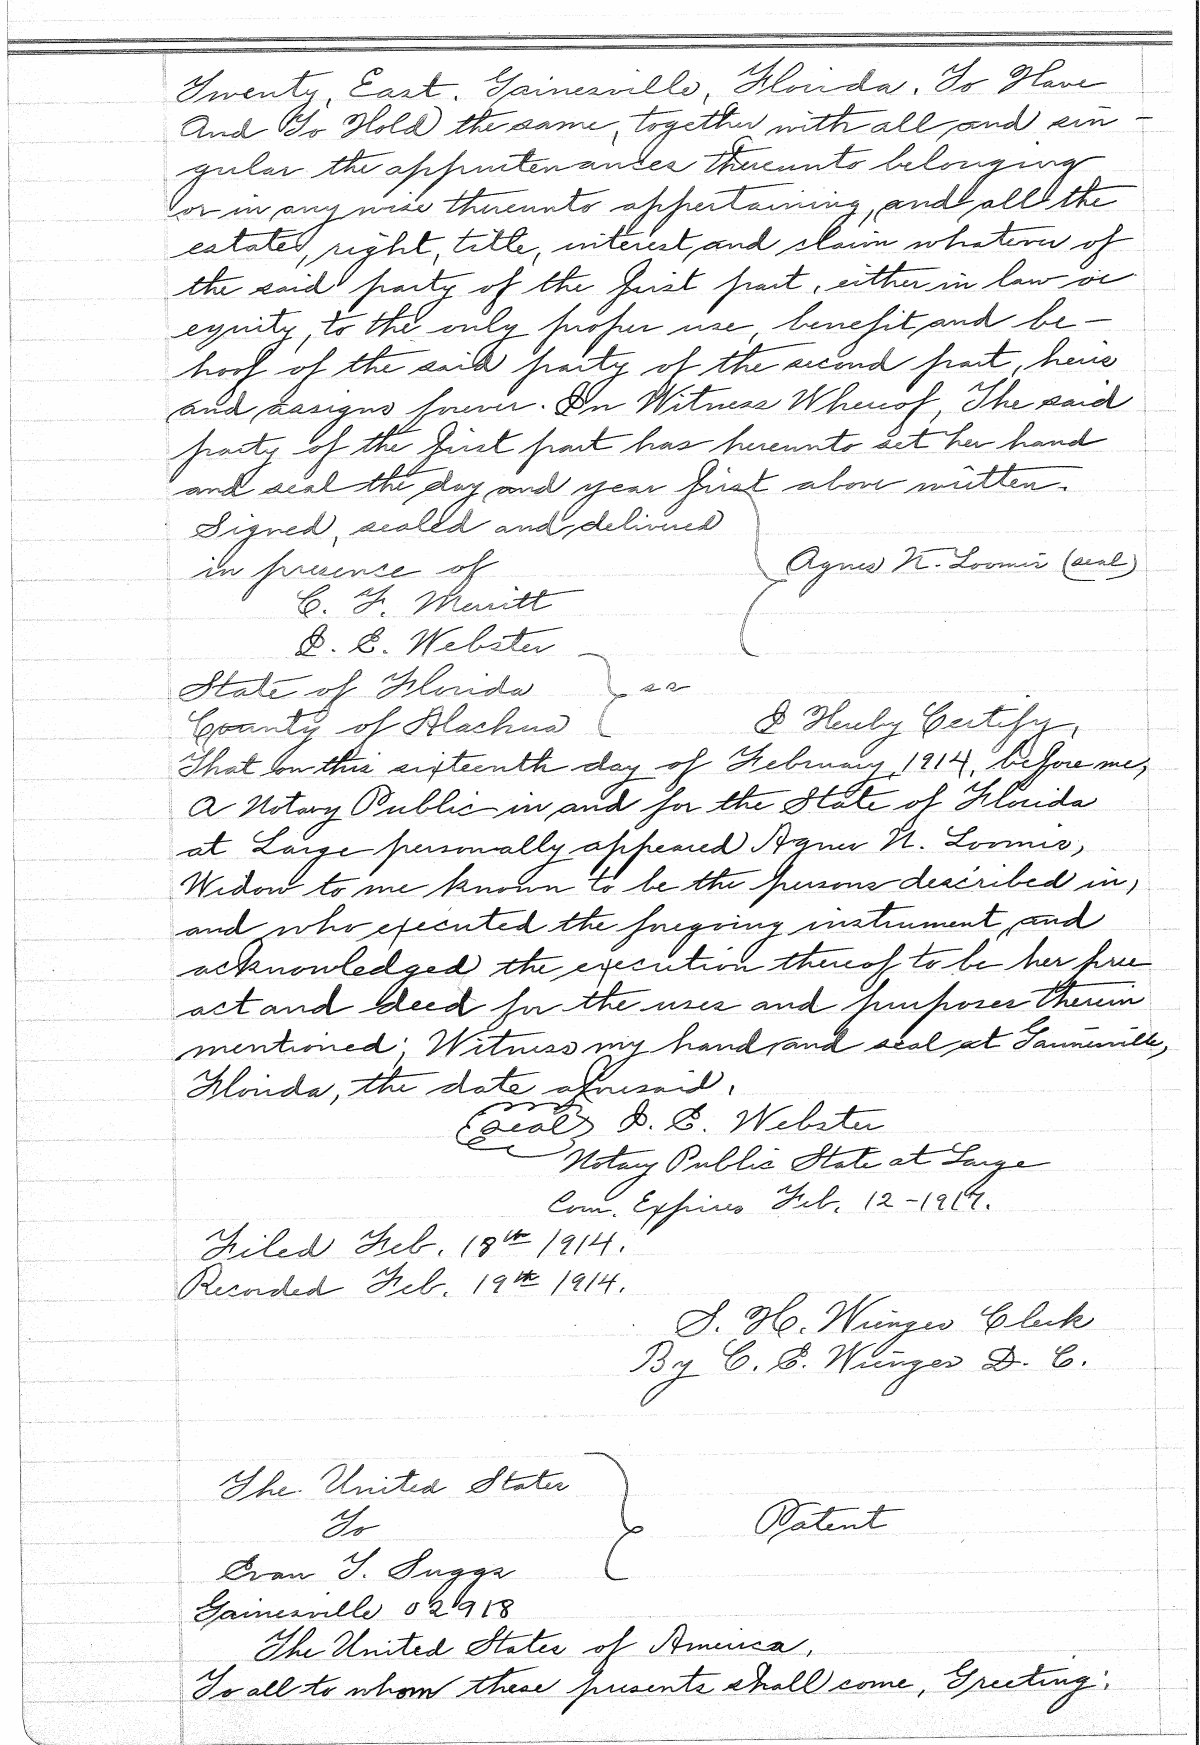 Twenty, East. Gainesville, Florida. To Have
And To Hold the same, together with all and sin-
gular the appurtenances thereunto belonging
or in any wise thereunto appertaining, and all the
estate, right, title, interest and claim whatever of
the said party of the first part, either in law or
equity, to the only proper use, benefit and be-
hoof of the said party of the second part, heirs
and assigns forever. In Witness Whereof, The said
party of the first part has hereunto set her hand
and seal the day and year first above written.
Signed, sealed and delivered
in presence of
Agnes N. Loomis (seal)
C. F. Merritt
I. E. Webster
State of Florida
ss
County of Alachua I Hereby Certify,
That on this sixteenth day of February, 1914, before me,
a Notary Public in and for the State of Florida
at Large personally appeared Agnes N. Loomis,
Widow to me known to be the persons described in,
and who executed the foregoing instrument, and
acknowledged the execution thereof to be her free
act and deed for the uses and purposes therein
mentioned; Witness my hand and seal at Gainesville,
Florida, the date aforesaid.
(seal) I. E. Webster
Notary Public State at Large
Com. Expires Feb. 12-1917.
Filed Feb. 18th 1914.
Recorded Feb. 19th 1914.
S. H. Wienges Clerk
By C. E. Wienges D. C.
The United States
To
Patent
Evan T. Suggs
Gainesville 02918
The United States of America,
To all to whom these presents shall come, Greeting: